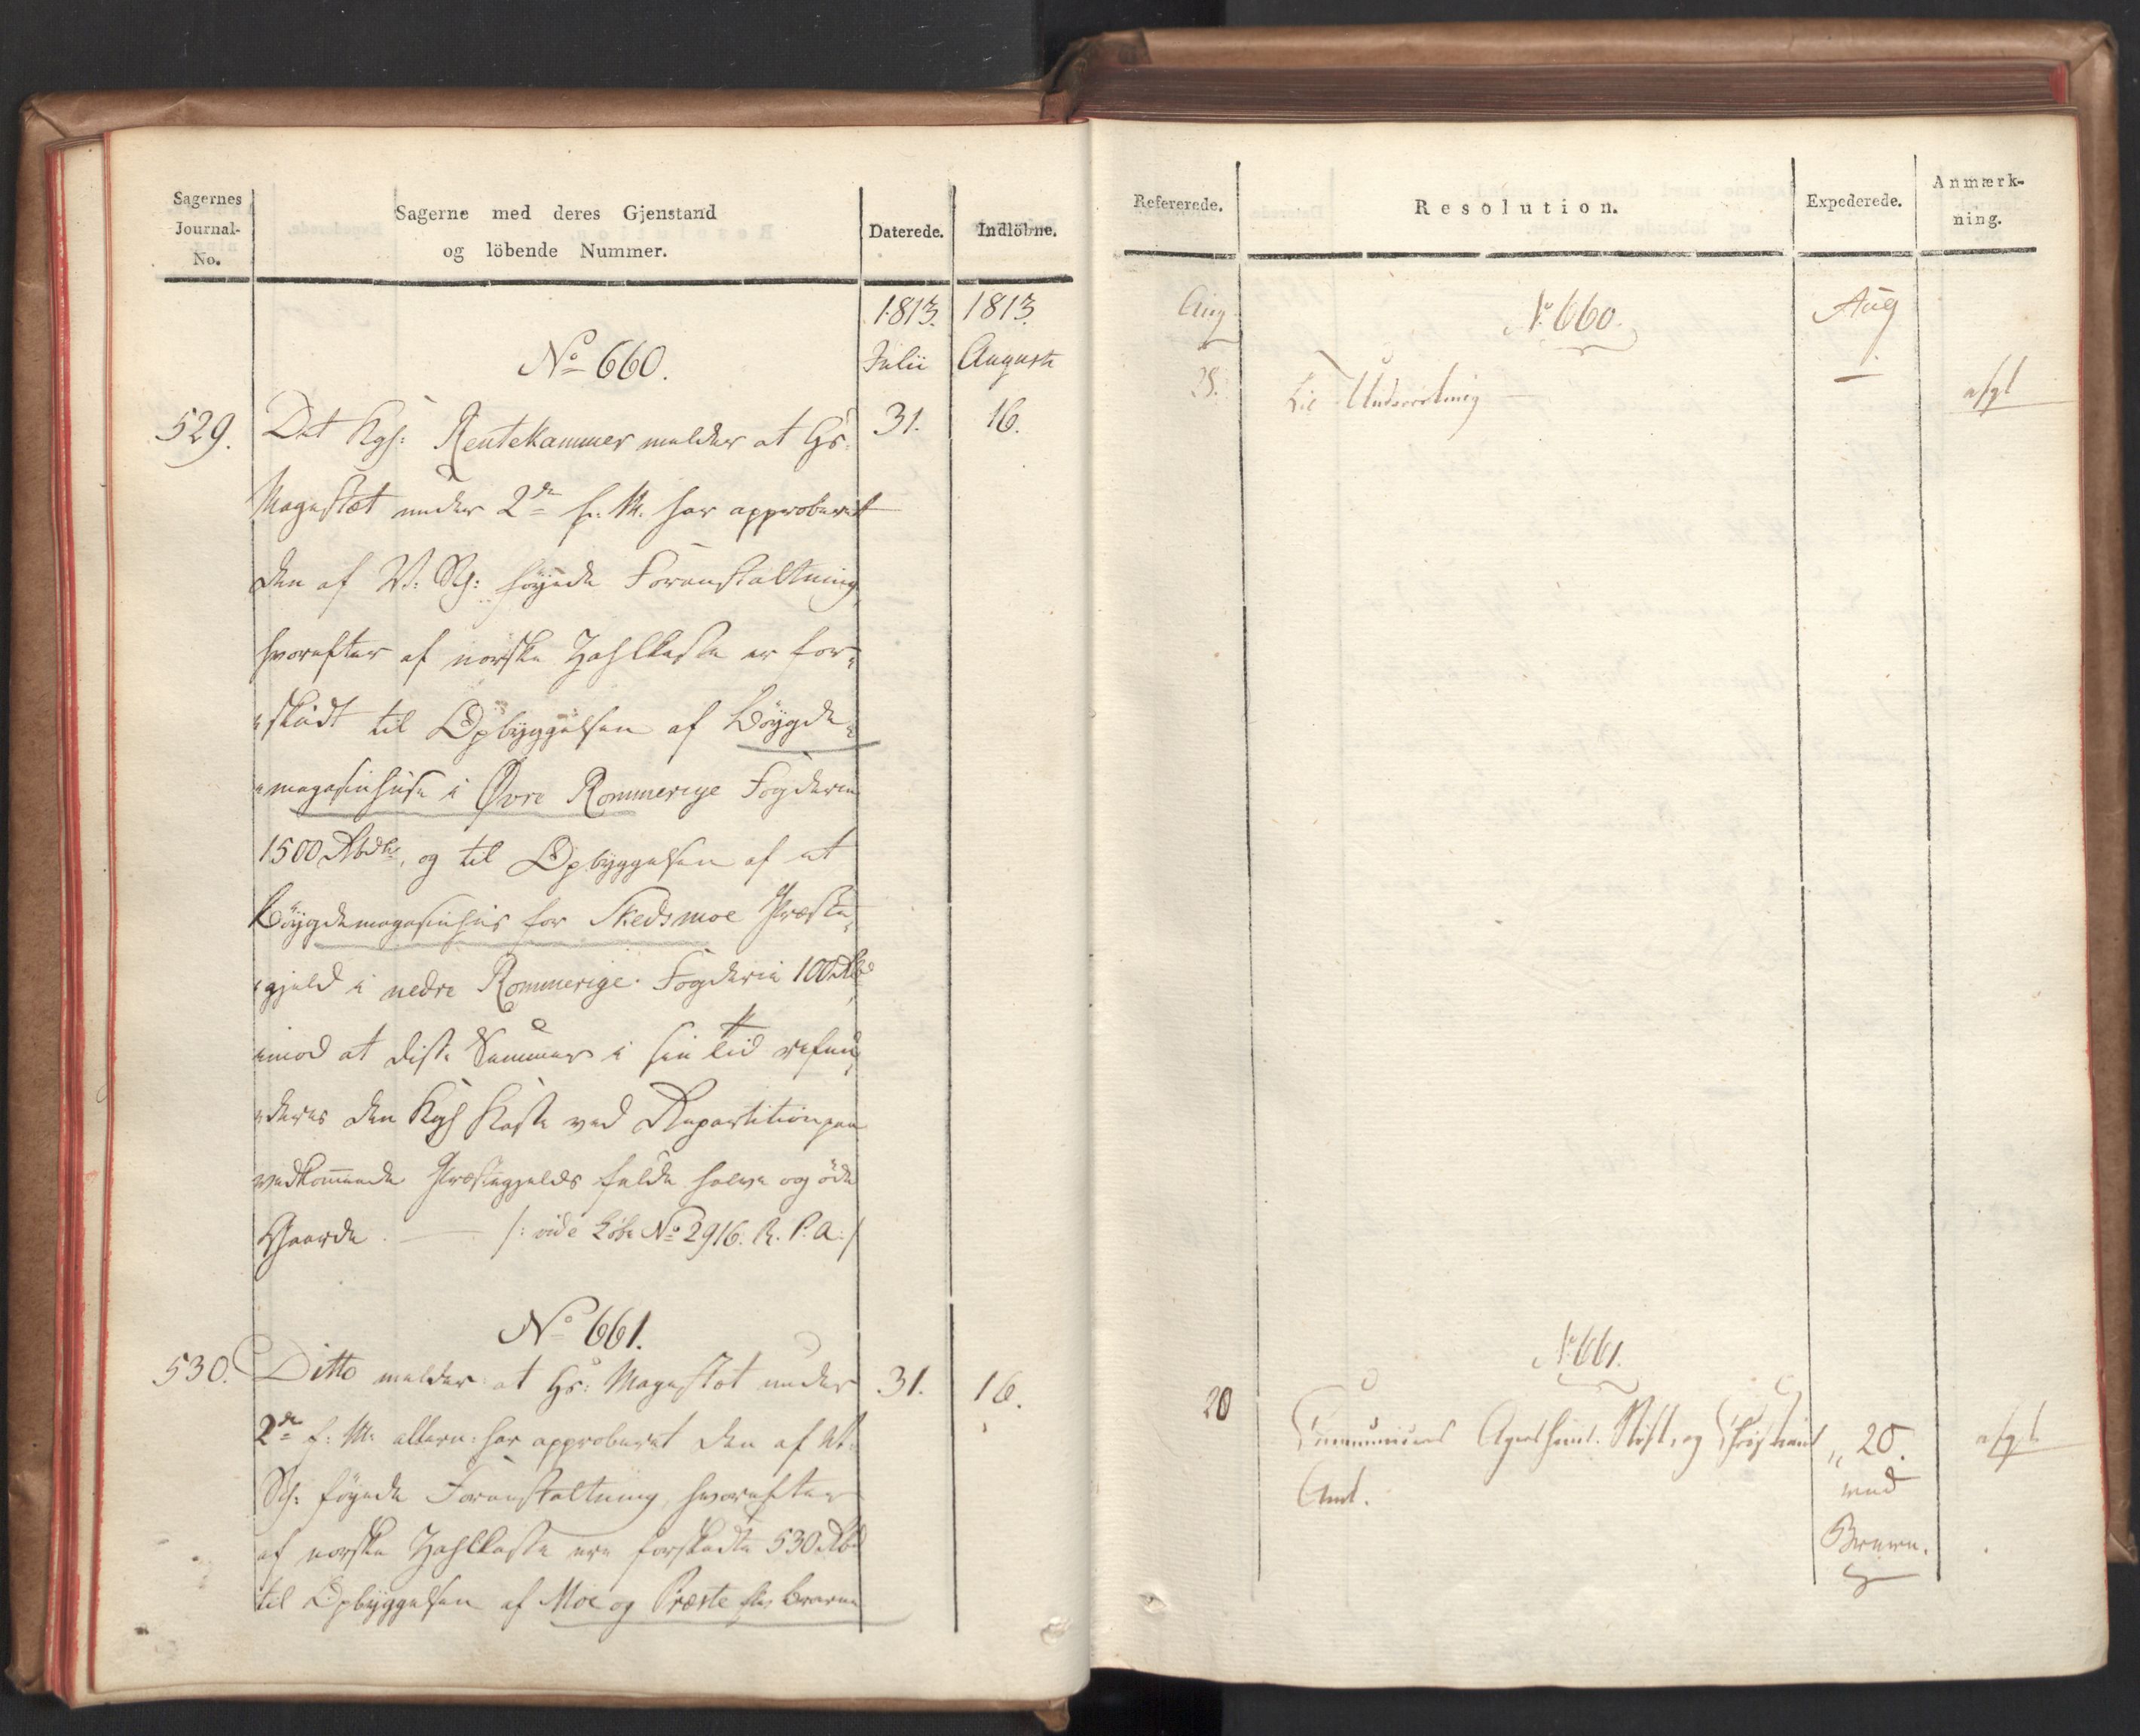 Sagernes
Journal-
No.
Sagerne med deres Gjenstand
og löbende Nummer.
Daterede.
Indlöbne.
1813. 1813.
Julii Augusti
No 660.
529. Det Kgl: Rentekammer melder at Hs: 31. 16.
Majestæt under 2de f. M. har approberet
den af V: føyede Foranstaltning
hvorefter af norske Zahlkasse er for-
skudt til Opbyggelsen af Böygde-
magasinhuse i Øvre Rommerige Fogderie
1500 Rbdlr, og til Opbyggelsen af et
Böygdemagasinhus for Skedsmoe Præste-
gjeld i nedre Rommerige Fogderie 100 Rbd
imod at disse Summer i sin tid refun-
deres den Kgl Kasse ved Repartition paa
vedkommende Præstegjelds fulde halve og öde
Gaarde. — /: vide Löbe No 2916. R. P. A :/
No 661.
530. Ditto melder at Hs: Majestæt under 31. 16.
2de f: M. har approberet den af
föyede Foranstaltning, hvorefter
af norske Zahlkasse ere forskudte 530 Rbd
til Opbyggelsen af Moe og Præste Broerne
Refererede.
Resolution.
Expederede.
Anmærk-
ning.
Aug No 660. Aug
28. Til Underretning
No 661.
20 Communiceres Agershuus Stift, og Christians " 20.
Amt. med
Brevene.